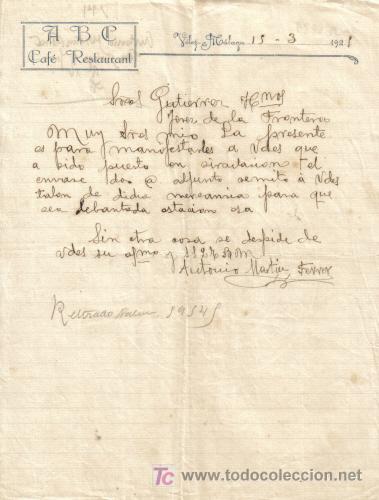 A B C
Café Restaurant
Velez-Málaga 15 - 3 1921
Sres Gutierrez Hnos
Jerez de la Frontera
Muy Sres mio La presente
es para manifestarles a Vdes que
a sido puerto en sirculacion el
envase dos @ adjunto remito à Vdes
talon de dicha mercansia para que
sea lebantada estacion
Sin otra cosa se despide de
Vdes su afmo y
Antonio Martin Ferrer
TC www.todocoleccion.net